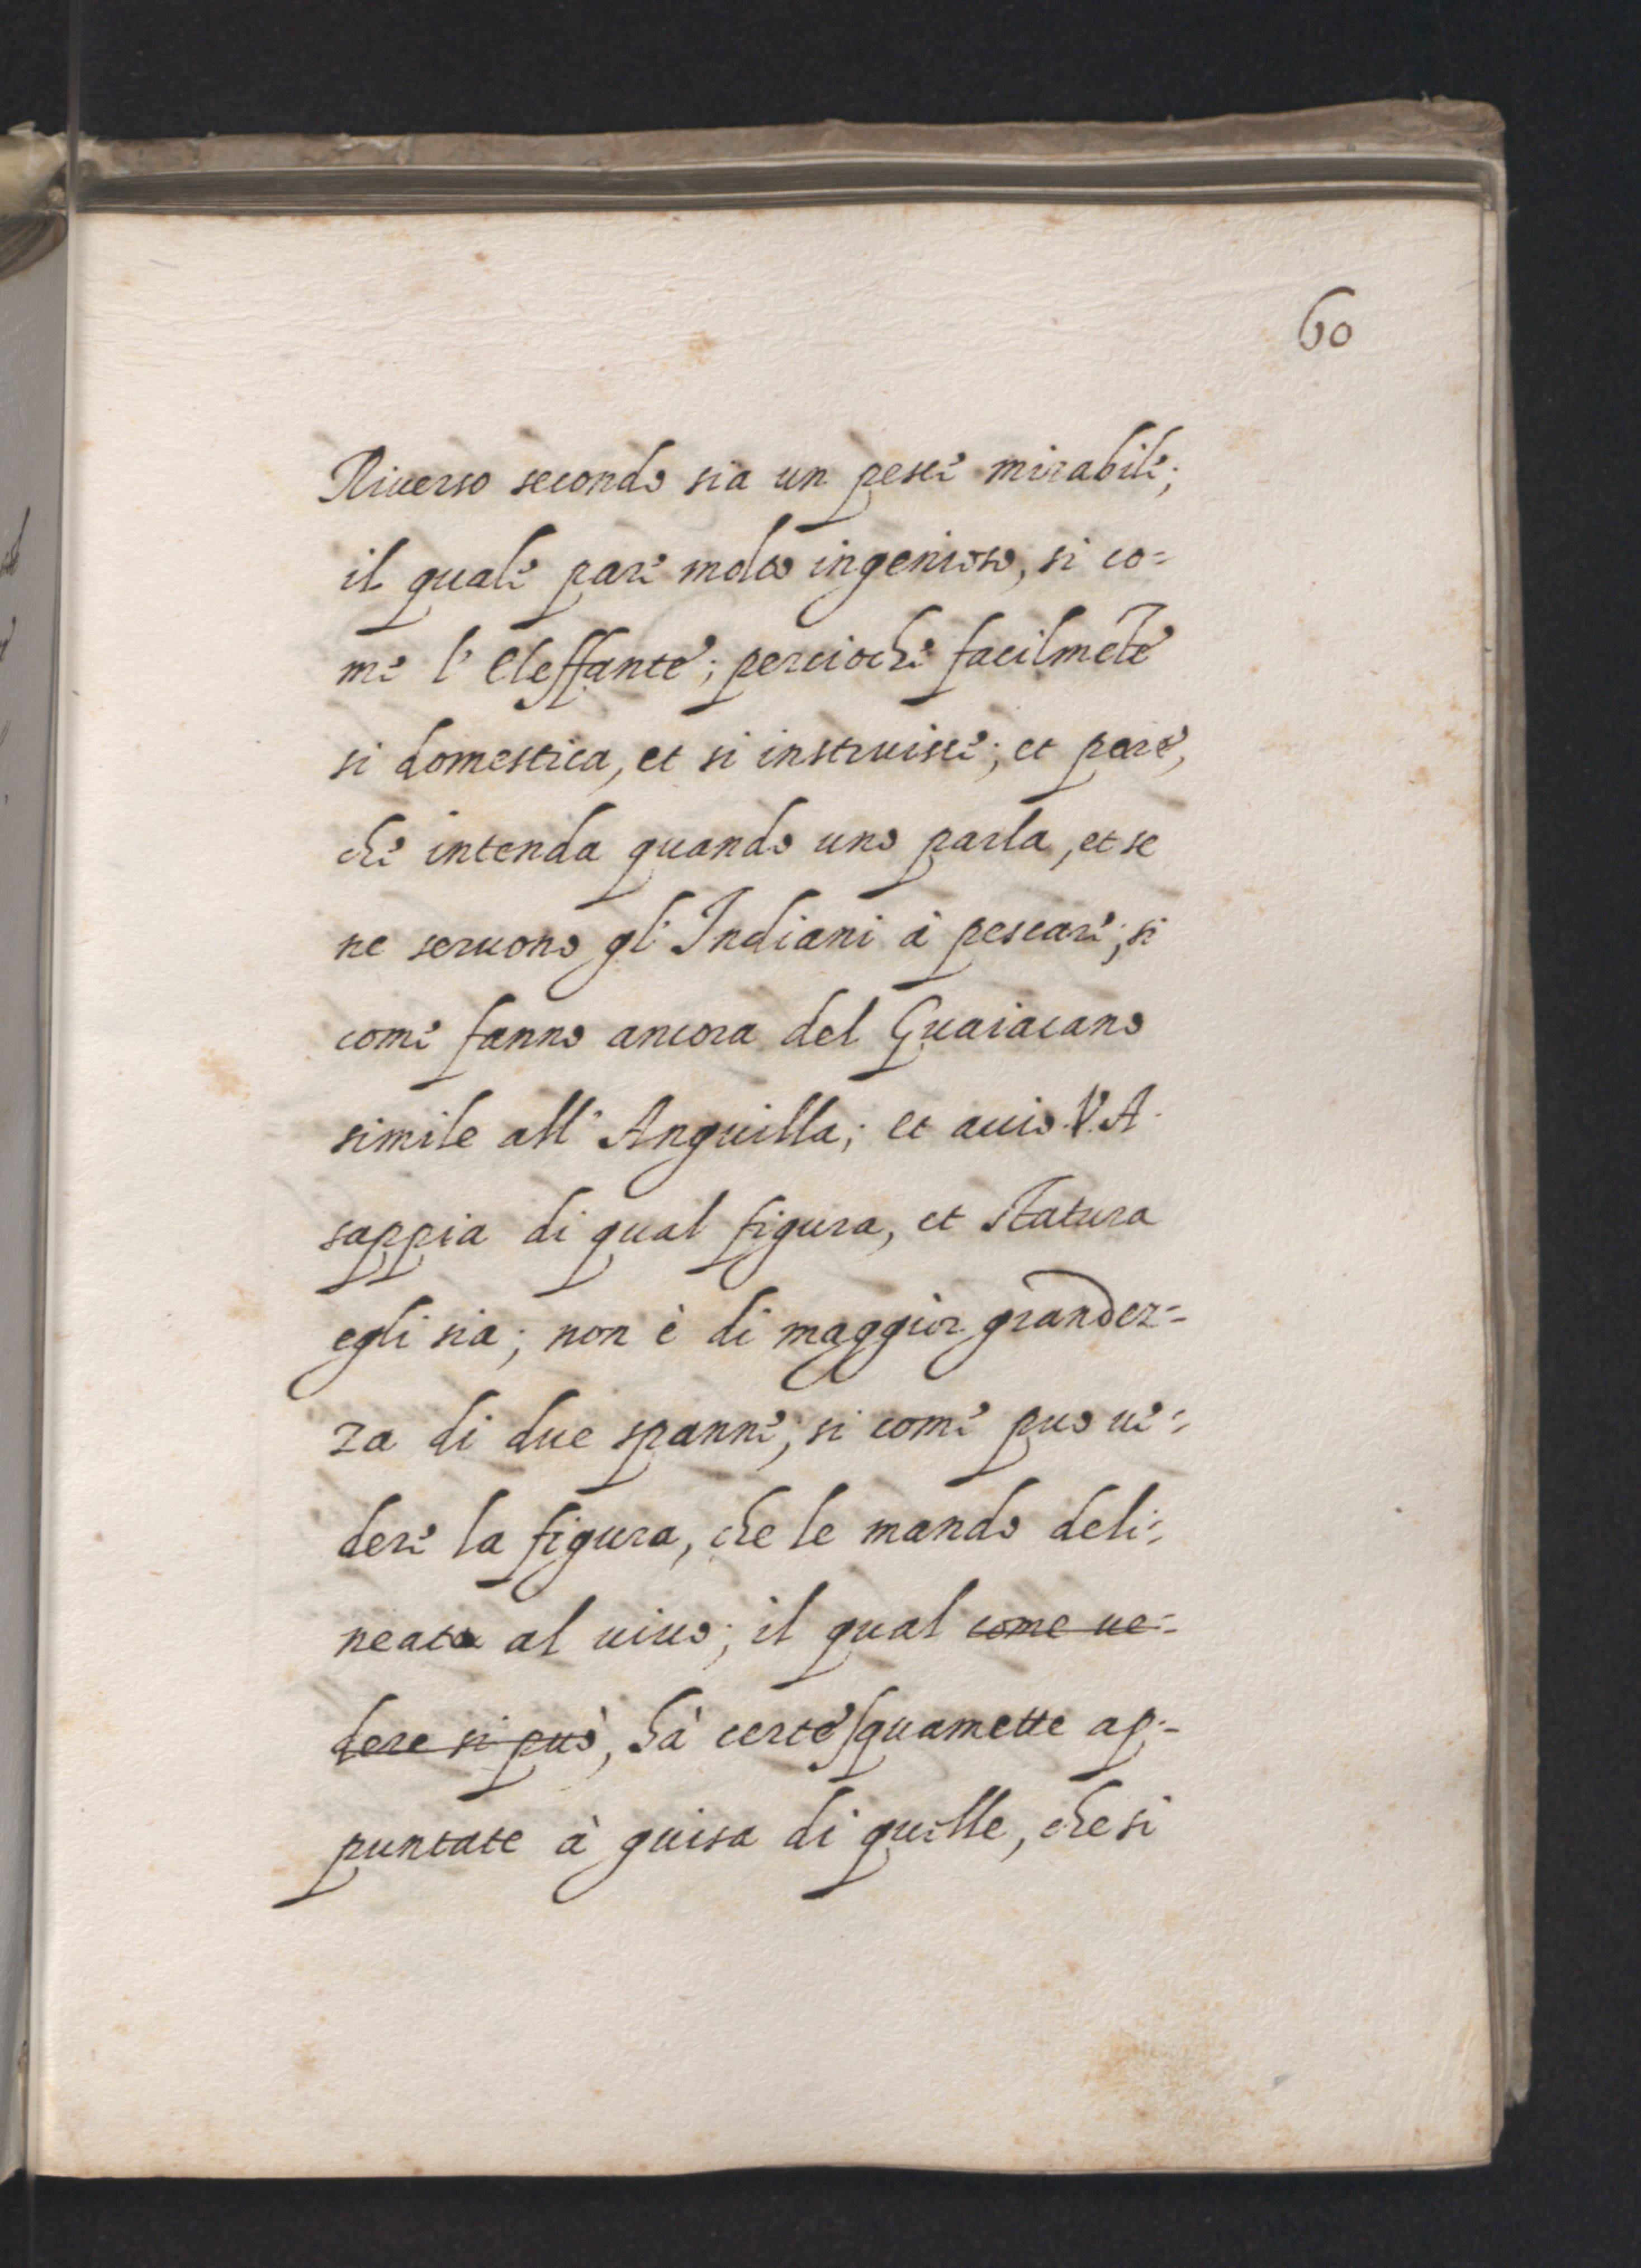 60
Riuerso secondo sia un pesce mirabile;
il quale pare molto ingenioso, si co=
me l'Eleffante; percioche facilmẽte
si domestica, et si instruisce; et pare,
che intenda quando uno parla, et se
ne seruono gl'Indiani à pescare; si
come fanno ancora del Guaiacano
simile all'Anguilla; et acciò V.A.
sappia di qual figura, et statura
egli sia; non è di maggior grandez=
za di due spanne; si come puo ue=
dere la figura, che le mando deli=
neata al uiuo; il qual come ue=
dere si può, hà certe squamette ap=
puntate à guisa di quelle, che si